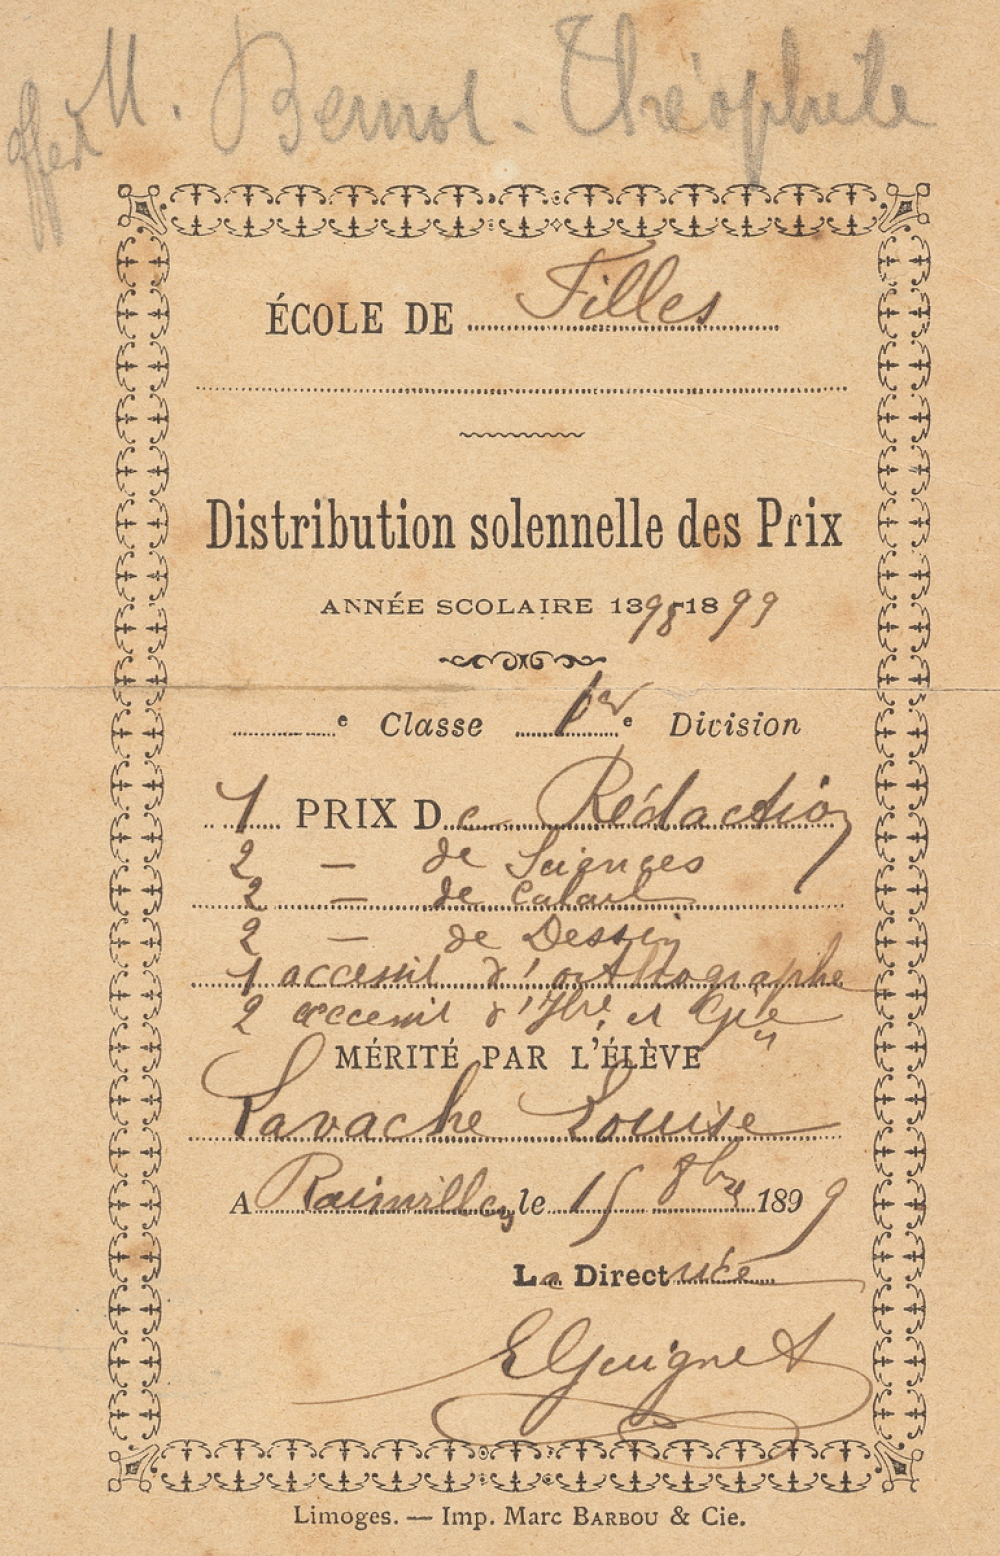 offert M. Bernot-Théophile
ÉCOLE DE Filles
Distribution solennelle des Prix
ANNÉE SCOLAIRE 1898-1899
e Classe 1er e Division
1 PRIX De Rédaction
2 — de Sciences
2 — de Calcul
2 — de Dessin
1 accessit d'orthographe
2 accessit d'Hre et Gie
MÉRITÉ PAR L'ÉLÈVE
Lavache Louise
A Rainvillers, le 15 8bre 1899
La Directrice
E Guignet
Limoges. — Imp. Marc BARBOU & Cie.